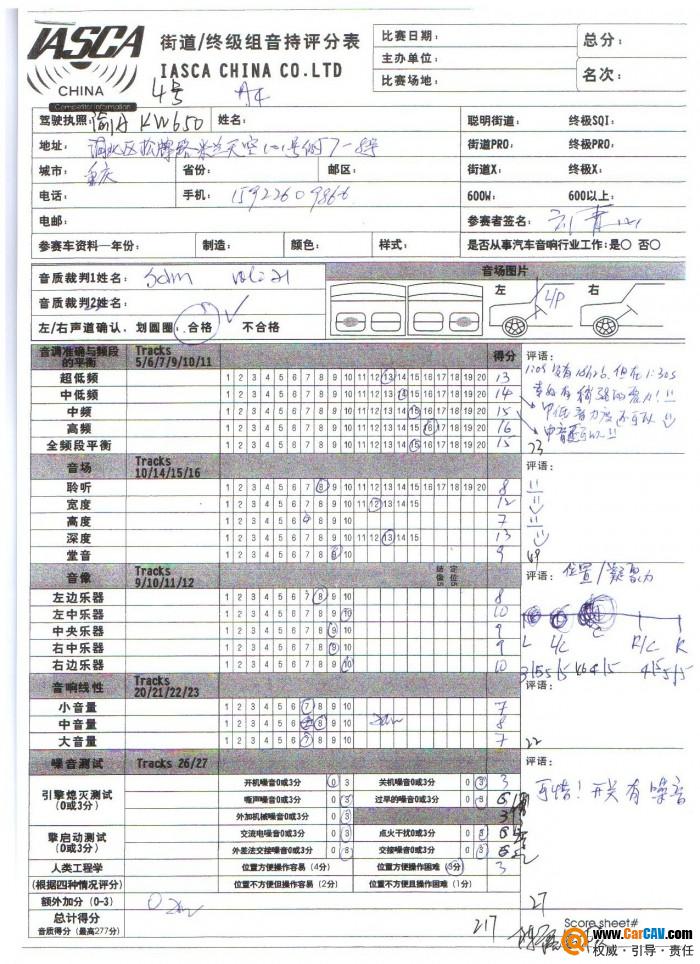 IASCA
CHINA
Competitor Information
街道/终级组音持评分表
IASCA CHINA CO.LTD
4号 A4
比赛日期：
主办单位：
比赛场地：
总分：
名次：
驾驶执照： 渝A KW650 姓名：
地址：
城市： 重庆 省份： 邮区：
电话： 手机：
电邮：
聪明街道： 终极SQI：
街道PRO： 终极PRO：
街道X： 终极X：
600W： 600以上：
参赛者签名：
参赛车资料—年份： 制造： 颜色： 样式： 是否从事汽车音响行业工作：是○ 否○
音质裁判1姓名： Sdm
音质裁判2姓名：
左/右声道确认、划圆圈：合格 不合格
音场图片
左 右
音调准确与频段的平衡 Tracks 5/6/7/9/10/11 得分 评语：
超低频 1 2 3 4 5 6 7 8 9 10 11 12 13 14 15 16 17 18 19 20 13
中低频 1 2 3 4 5 6 7 8 9 10 11 12 13 14 15 16 17 18 19 20 14
中频 1 2 3 4 5 6 7 8 9 10 11 12 13 14 15 16 17 18 19 20 15
高频 1 2 3 4 5 6 7 8 9 10 11 12 13 14 15 16 17 18 19 20 16
全频段平衡 1 2 3 4 5 6 7 8 9 10 11 12 13 14 15 16 17 18 19 20 15
音场 Tracks 10/14/15/16 评语：
聆听 1 2 3 4 5 6 7 8 9 10 11 12 13 14 15 16 17 18 19 20 8
宽度 1 2 3 4 5 6 7 8 9 10 11 12 13 14 15 12
高度 1 2 3 4 5 6 7 8 9 10 7
深度 1 2 3 4 5 6 7 8 9 10 11 12 13 14 15 13
堂音 1 2 3 4 5 6 7 8 9 10 9
音像 Tracks 9/10/11/12 结像5 定位5 评语： 位置/凝聚力
左边乐器 1 2 3 4 5 6 7 8 9 10 8
左中乐器 1 2 3 4 5 6 7 8 9 10 10
中央乐器 1 2 3 4 5 6 7 8 9 10 9
右中乐器 1 2 3 4 5 6 7 8 9 10 9
右边乐器 1 2 3 4 5 6 7 8 9 10 10
L L/C C R/C R
音响线性 Tracks 20/21/22/23 评语：
小音量 1 2 3 4 5 6 7 8 9 10 7
中音量 1 2 3 4 5 6 7 8 9 10 8
大音量 1 2 3 4 5 6 7 8 9 10 7
22
噪音测试 Tracks 26/27 评语：
引擎熄灭测试（0或3分） 开机噪音0或3分 0 3 关机噪音0或3分 0 3 3
嘶声噪音0或3分 0 3 过早的噪音0或3分 0 3 6
外加机械噪音0或3分 0 3 3
可惜！开关有噪音
擎启动测试（0或3分） 交流电噪音0或3分 0 3 点火干扰0或3分 0 3 6
外差法交接噪音0或3分 0 3 交接噪音0或3分 0 3 6
人类工程学 位置方便操作容易（4分） 位置方便操作困难（3分） 3
（根据四种情况评分） 位置不方便但操作容易（2分） 位置不方便且操作困难（1分）
额外加分（0-3） 0 27
总计得分 217
音质得分（最高277分） Score sheet#
www.CarCAV.com
权威·引导·责任